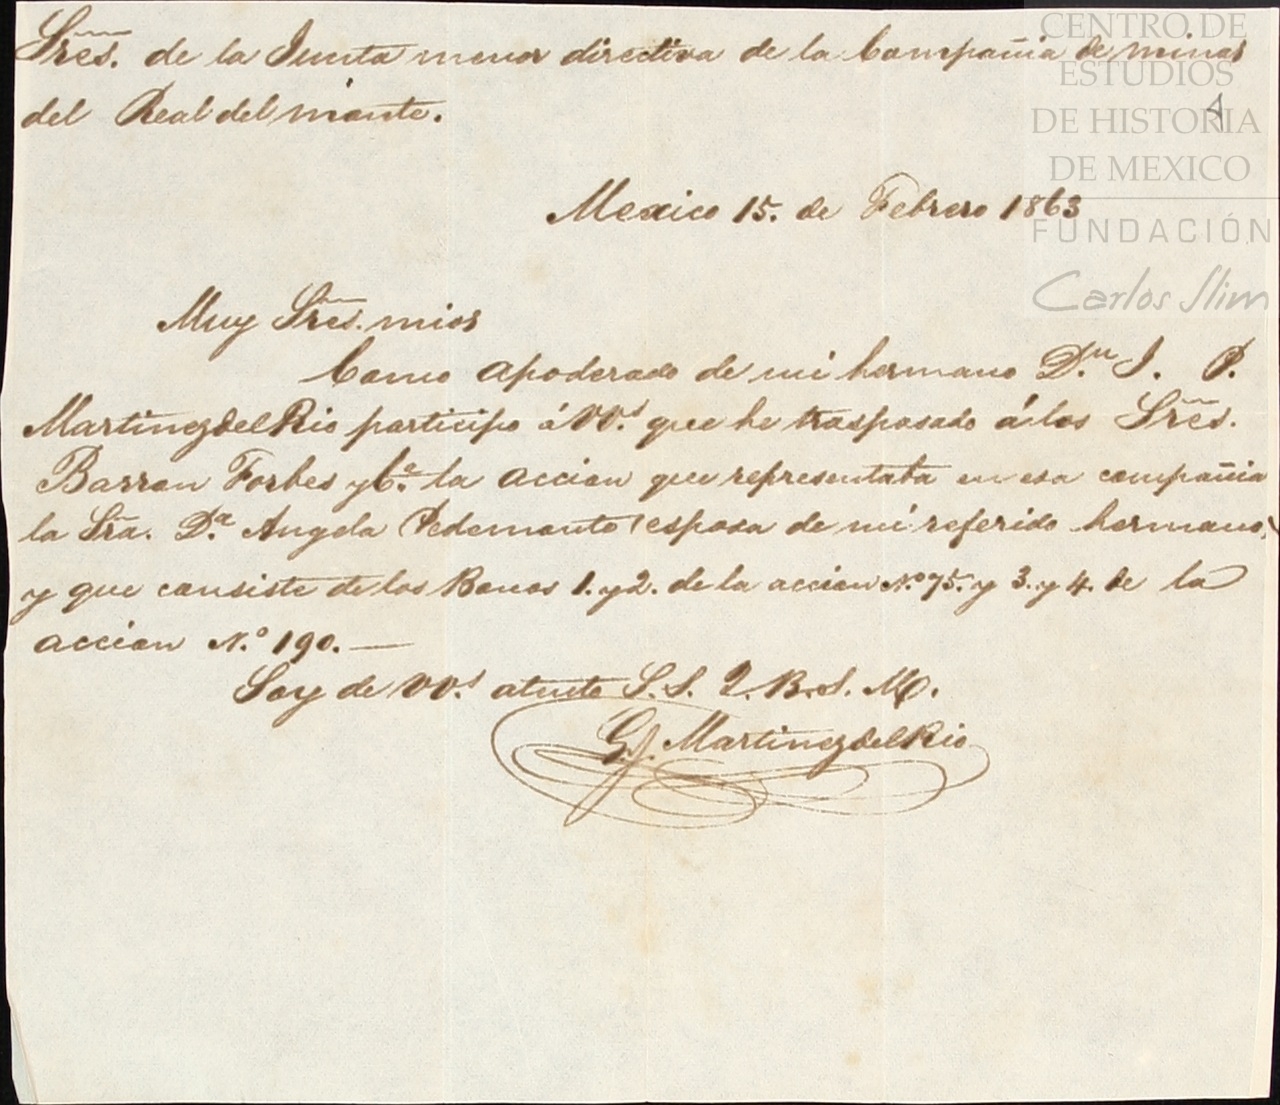 Sres. de la Junta menor directiva de la Compañia de minas
del Real del monte.
Mexico 15. de Febrero 1863
Muy Sres. mios
Como apoderado de mi hermano Dn. J. P.
Martinez del Rio participo á VVs. que he traspasado á los Sres.
Barron Forbes y Ca. la accion que representaba en esa compañia
la Sra. Da. Angela Pedemonte (esposa de mi referido hermano)
y que consiste de los Bonos 1. y 2. de la accion No. 75. y 3. y 4. de la
accion No. 190.—
Soy de VVs. atento S. S. Q. B. S. M.
G. Martinez del Rio
CENTRO DE
ESTUDIOS
DE HISTORIA
DE MEXICO
FUNDACIÓN
Carlos Slim